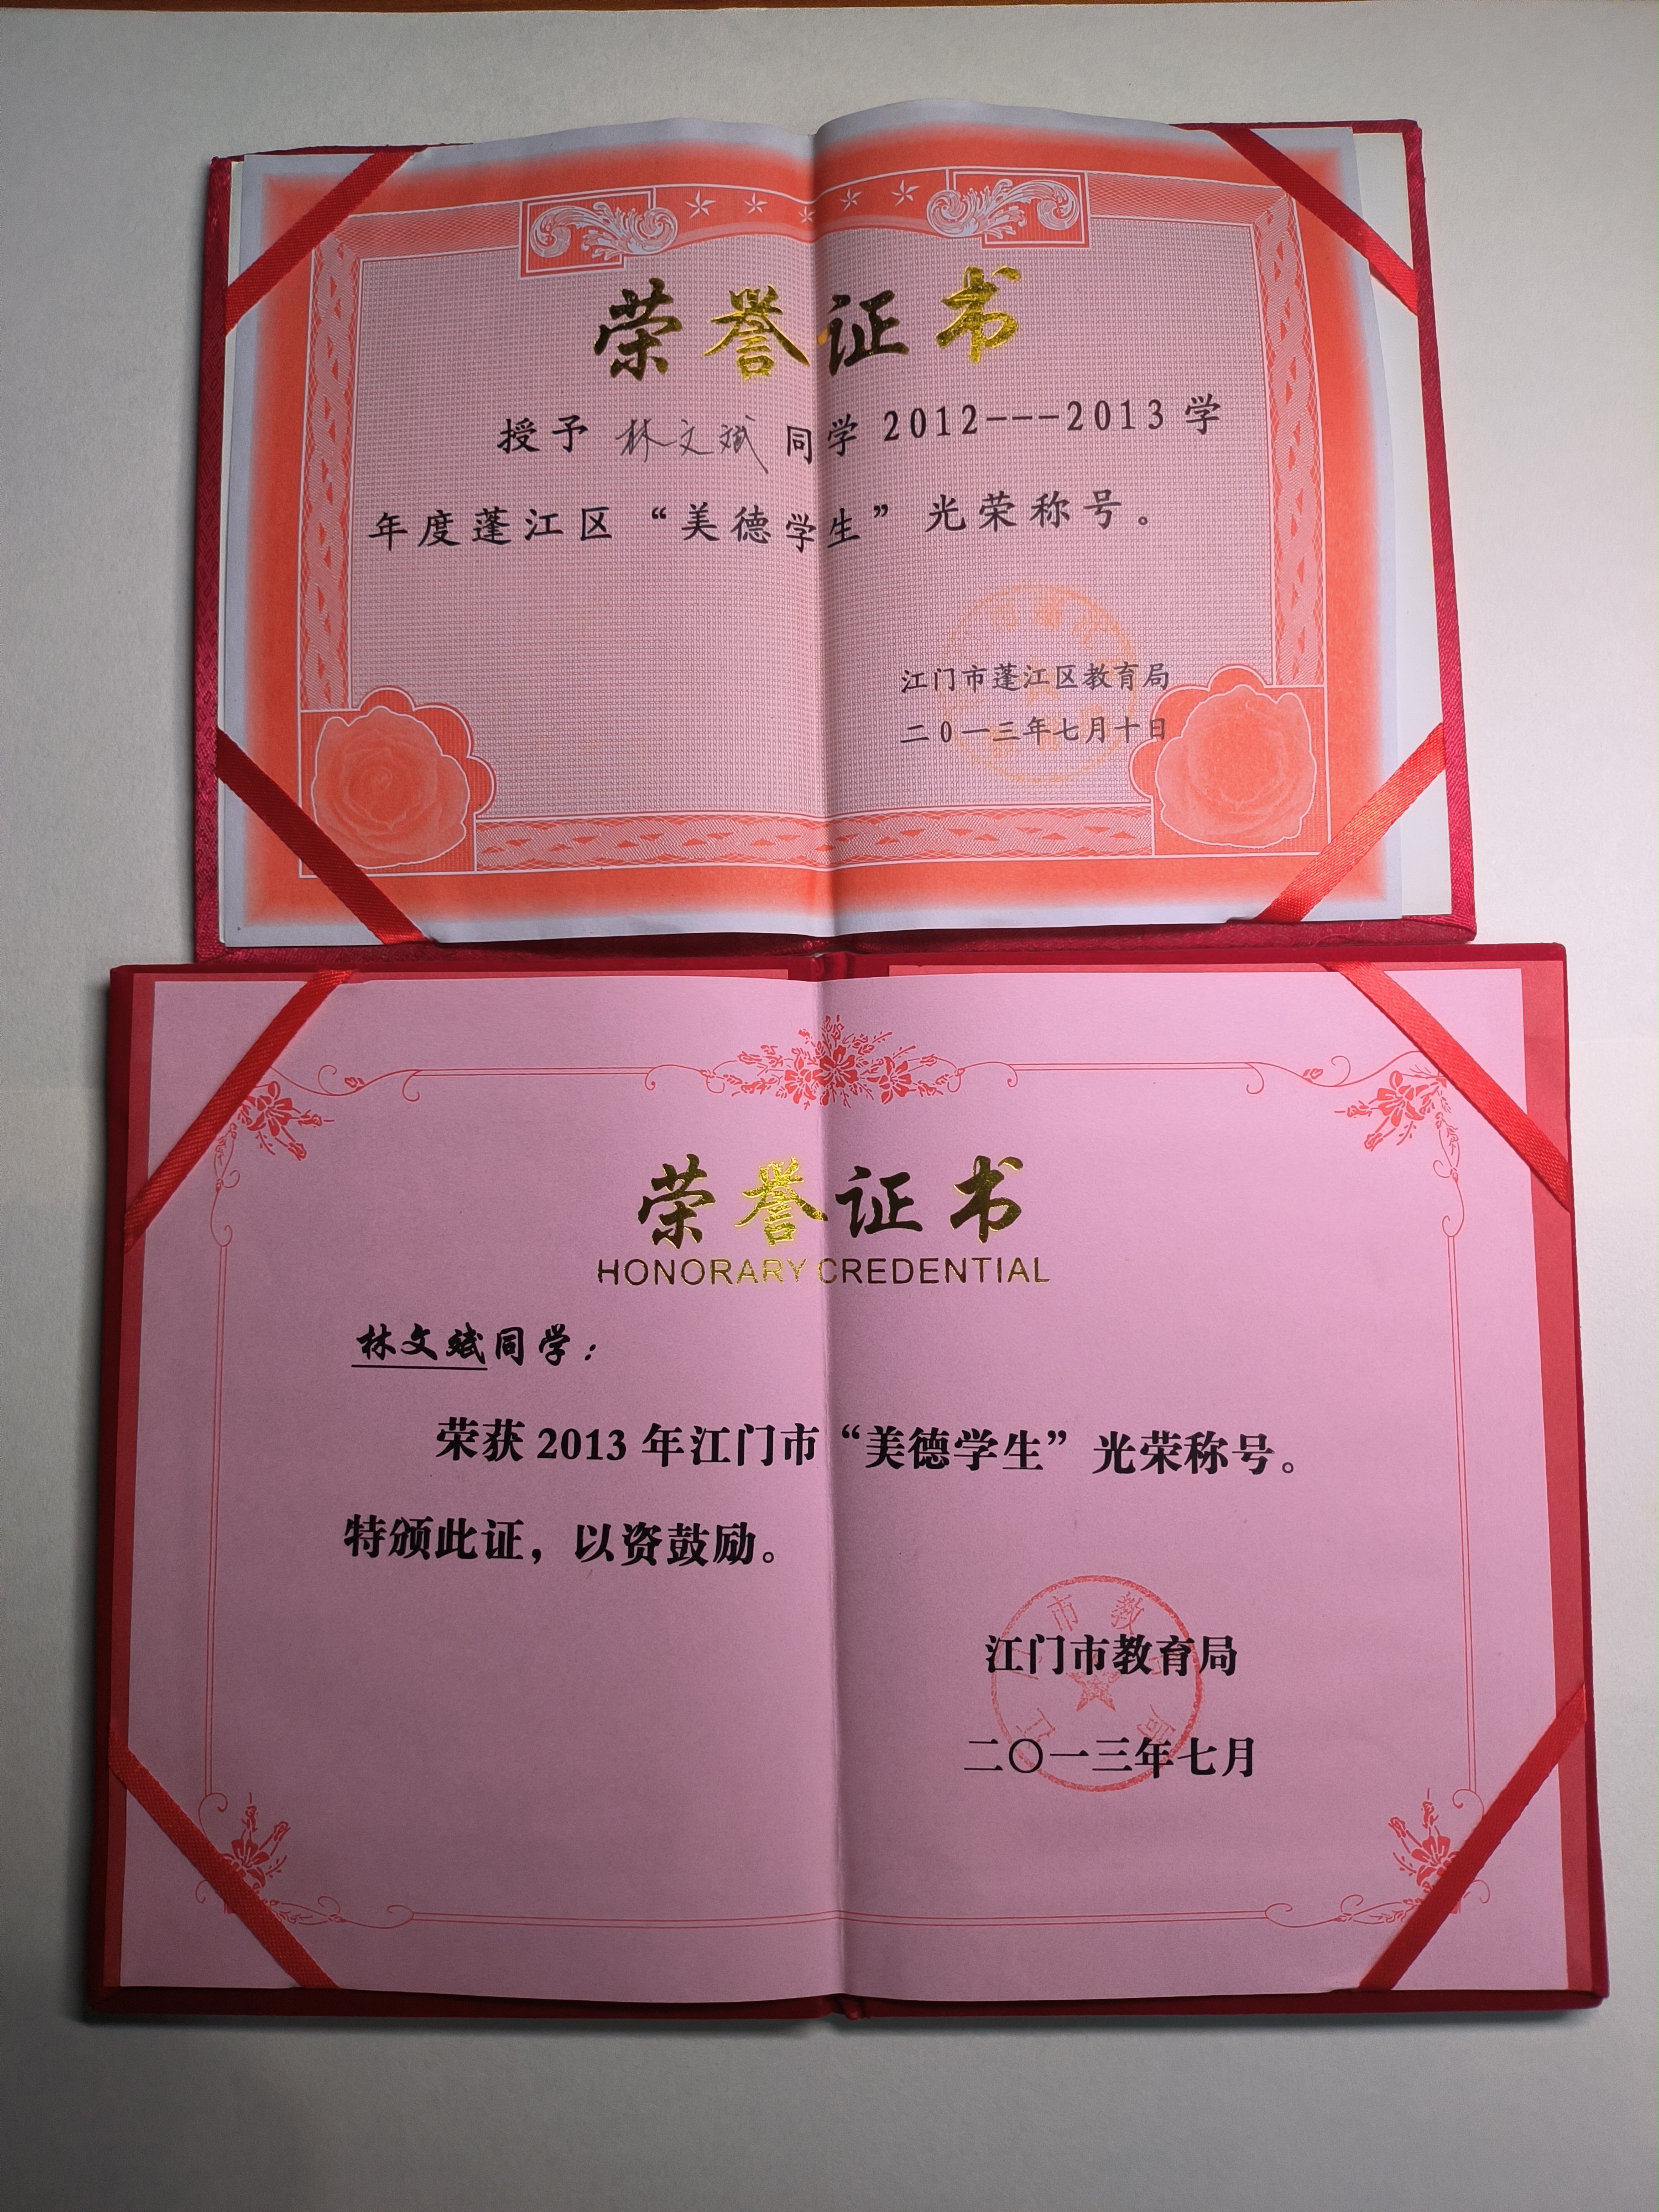 荣誉证书
授予 林文斌 同学 2012---2013 学
年度蓬江区“美德学生”光荣称号。
江门市蓬江区教育局
二0一三年七月十日
荣誉证书
HONORARY CREDENTIAL
林文斌同学：
荣获 2013 年江门市“美德学生”光荣称号。
特颁此证，以资鼓励。
江门市教育局
二〇一三年七月